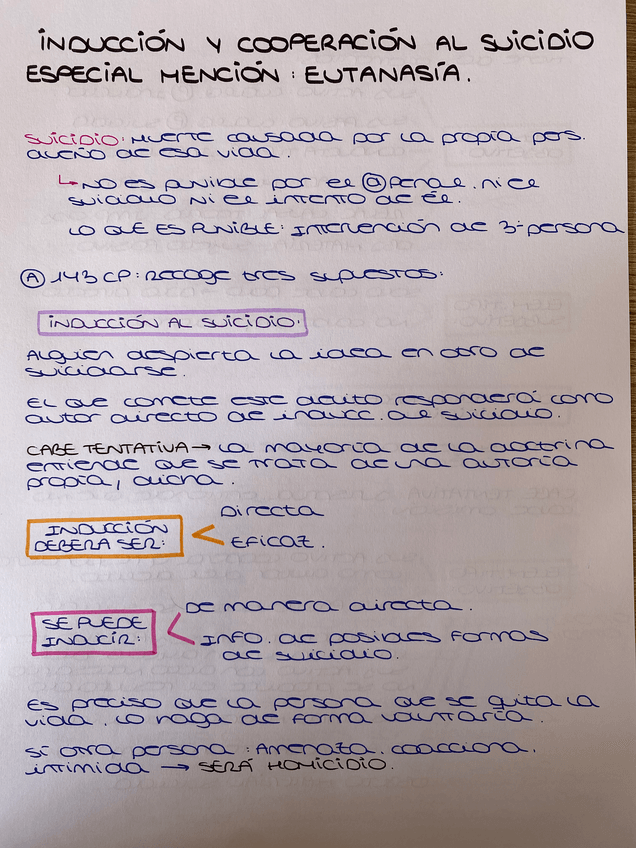 INDUCCIÓN Y COOPERACIÓN AL SUICIDIO
ESPECIAL MENCIÓN: EUTANASÍA.
SUICIDIO: MUERTE causada por la propia pers.
dueño de esa vida.
↳ NO es punible por el D Penal. ni el
suicidio ni el intento de él.
LO QUE ES PUNIBLE: Intervención de 3ª persona
(A) 143 CP: Recoge tres supuestos:
INDUCCIÓN AL SUICIDIO.
Alguien despierta la idea en otro de
suicidarse.
EL que comete este delito responderá como
autor directo de inducc. al suicidio.
CABE TENTATIVA → La mayoría de la doctrina
entiende que se trata de una autoría
propia, dicha.
INDUCCIÓN
DEBERA SER:
Directa
Eficaz.
SE PUEDE
INDUCIR:
De manera directa.
INFO. de posibles formas
de suicidio.
Es preciso que la persona que se quita la
vida. lo haga de forma voluntaria.
Si otra persona: Amenaza. coacciona.
intimida → SERÁ HOMICIDIO.